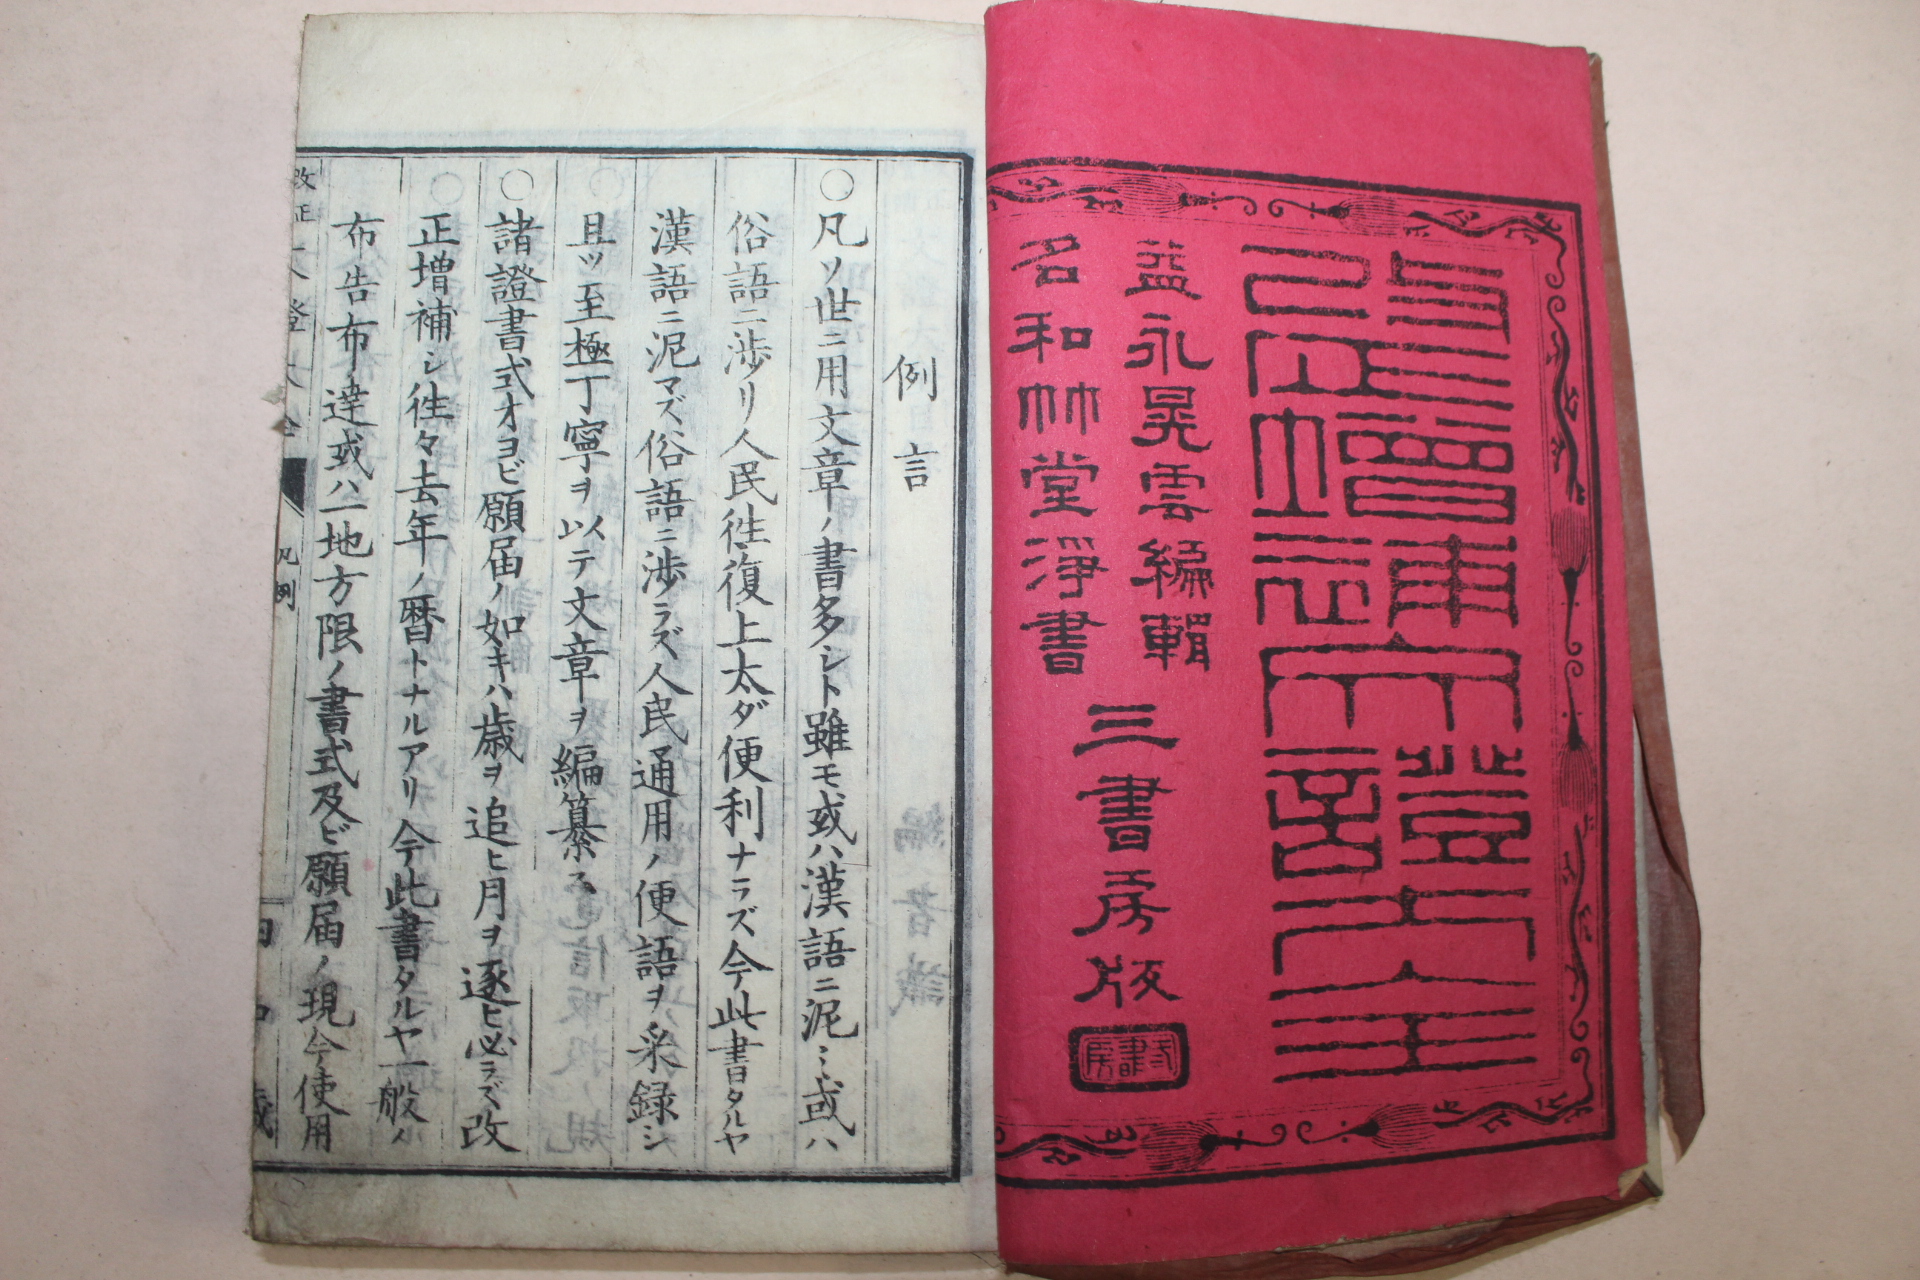 改正增補文證大全
益永晃雲編輯
名和竹堂淨書
三書房版
例言
○凡ソ世ニ用文章ノ書多シト雖モ或ハ漢語ニ泥ミ或ハ
俗語ニ渉リ人民徃復上太ダ便利ナラズ今此書タルヤ
漢語ニ泥マズ俗語ニ渉ラズ人民通用ノ便語ヲ采録シ
且ツ至極丁寧ヲ以テ文章ヲ編纂ス
○諸證書式オヨビ願届ノ如キハ歳ヲ追ヒ月ヲ逐ヒ必ラズ改
正増補シ徃々去年ノ暦トナルアリ今此書タルヤ一般ノ
布告布達或ハ一地方限ノ書式及ビ願届ノ現今使用
改正文證大全
凡例